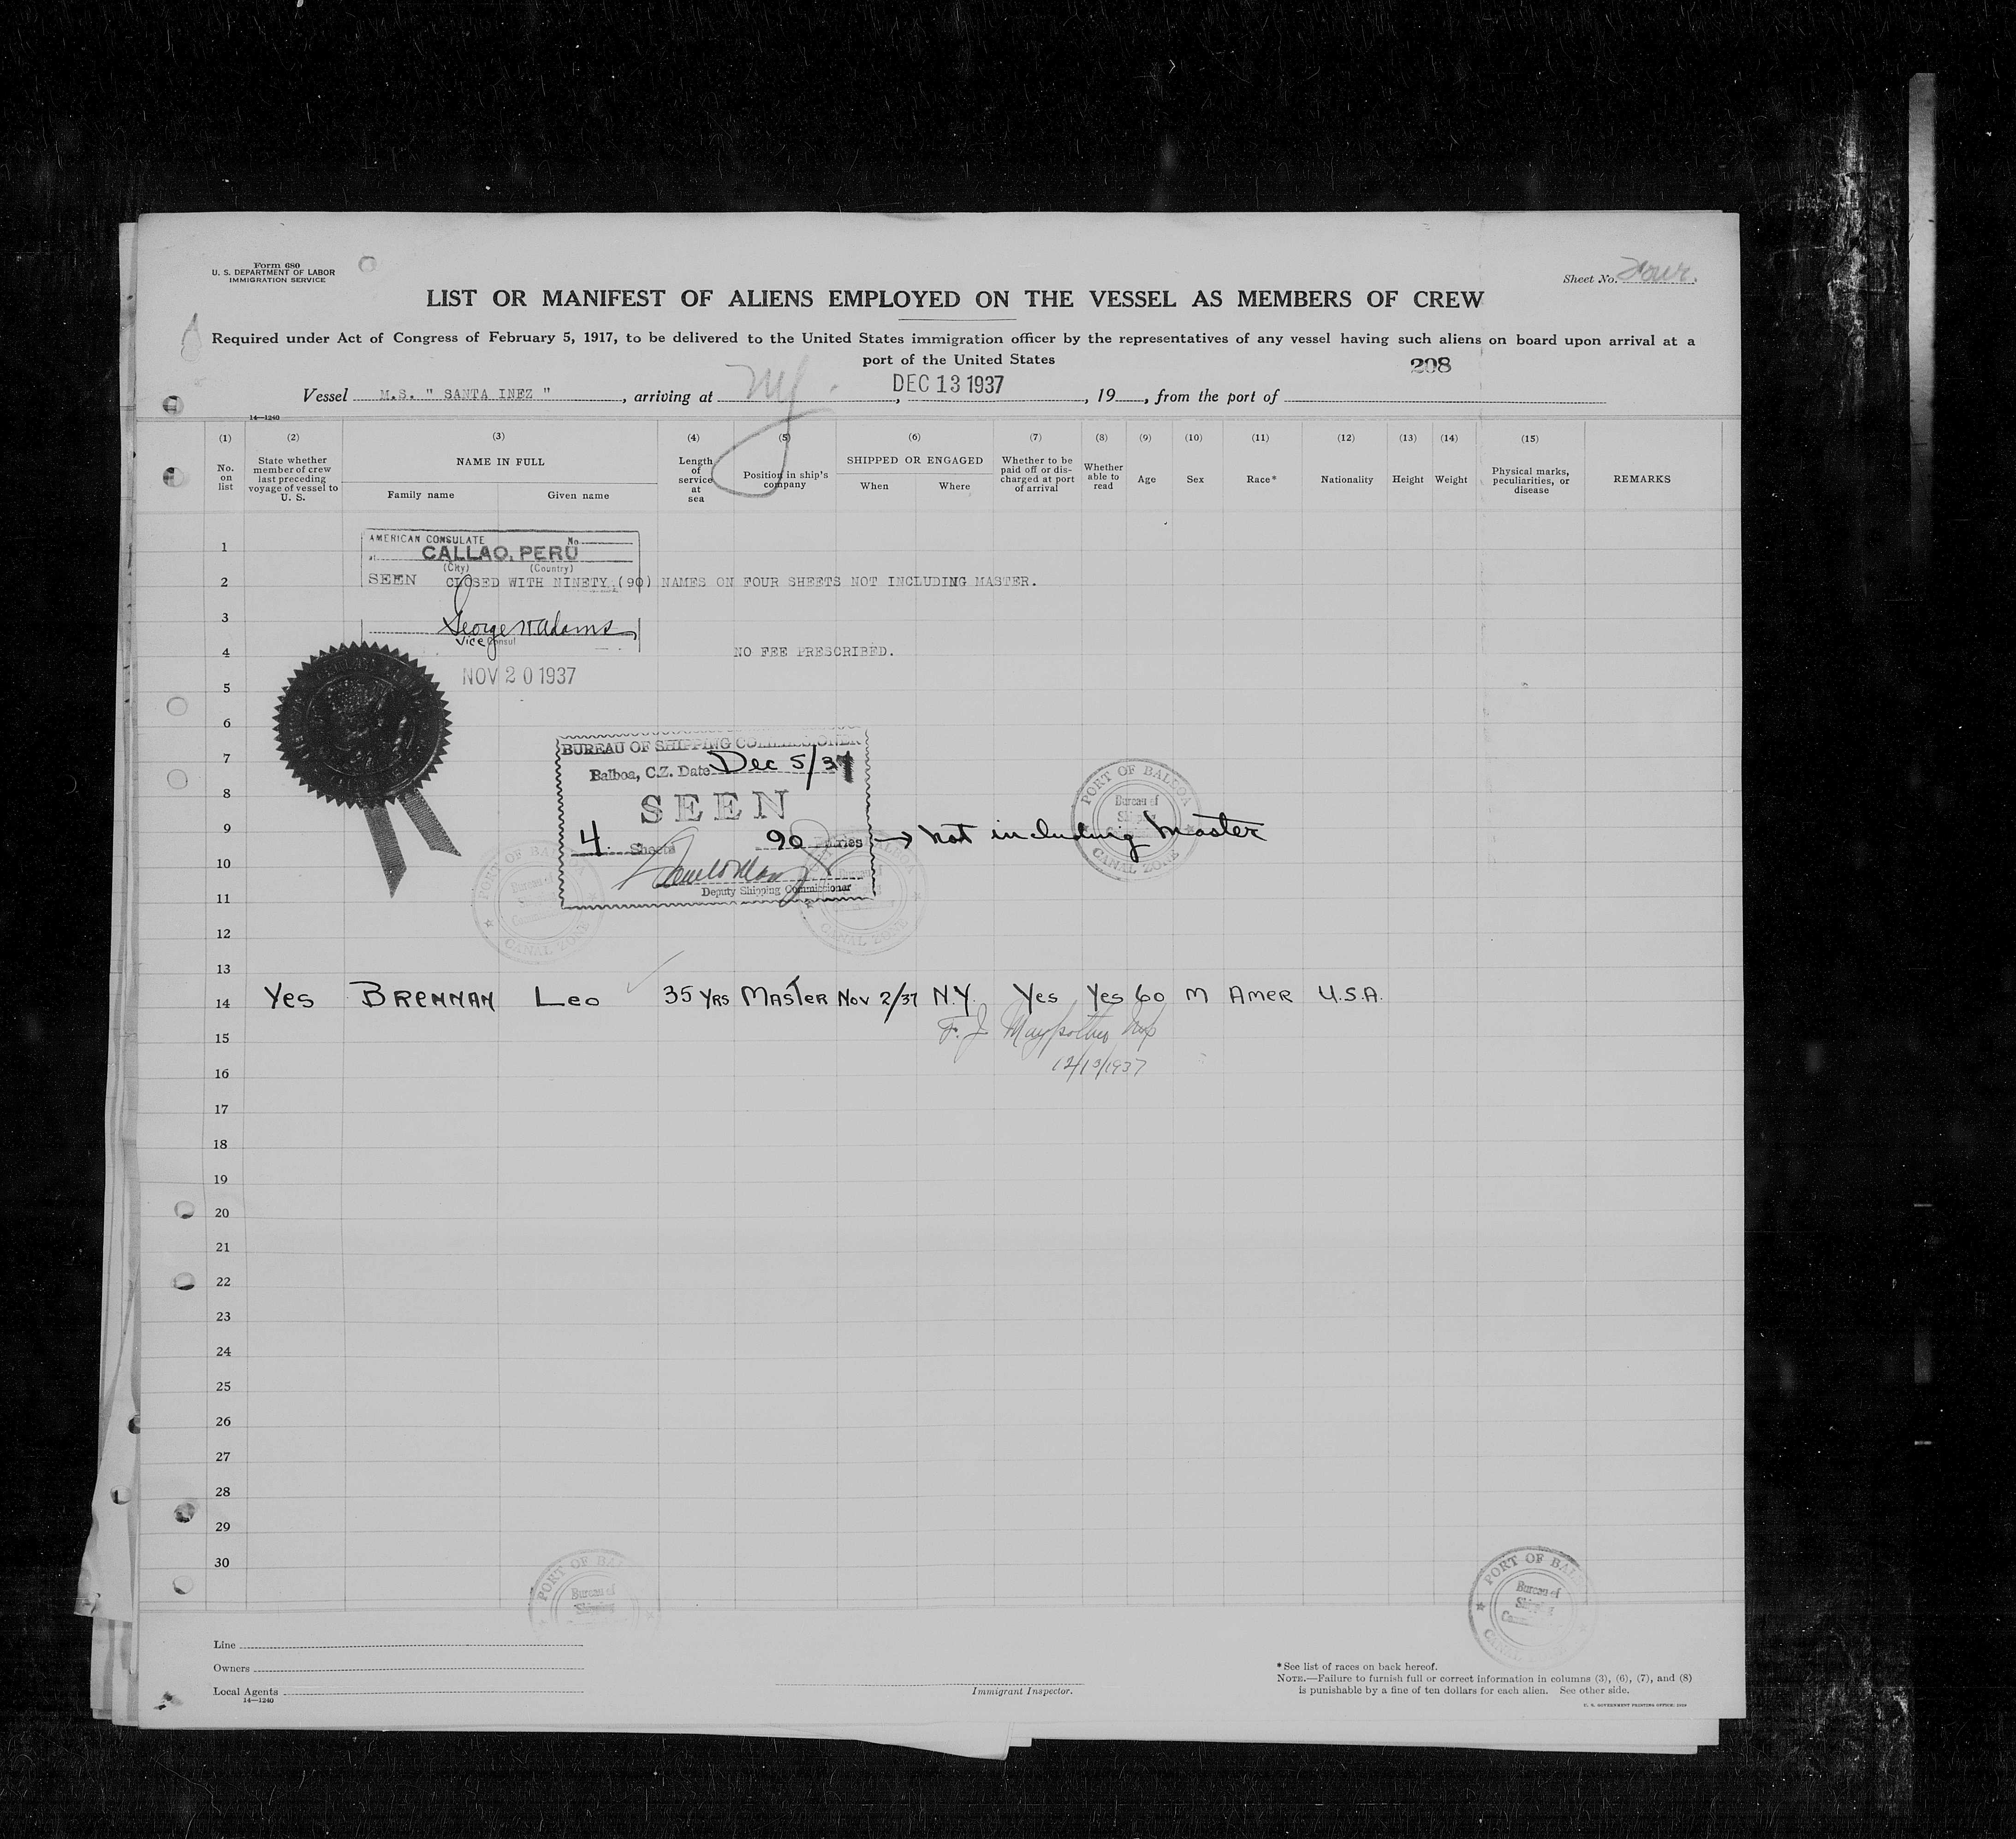 Form 680
U. S. DEPARTMENT OF LABOR
IMMIGRATION SERVICE
Sheet No. Four.
LIST OR MANIFEST OF ALIENS EMPLOYED ON THE VESSEL AS MEMBERS OF CREW
Required under Act of Congress of February 5, 1917, to be delivered to the United States immigration officer by the representatives of any vessel having such aliens on board upon arrival at a
port of the United States
208
Vessel M.S. " SANTA INEZ ", arriving at NY. , DEC 13 1937 , 19 , from the port of
14—1240
(1) (2) (3) (4) (5) (6) (7) (8) (9) (10) (11) (12) (13) (14) (15)
No. on list
State whether member of crew last preceding voyage of vessel to U. S.
NAME IN FULL
Family name Given name
Length of service at sea
Position in ship's company
SHIPPED OR ENGAGED
When Where
Whether to be paid off or discharged at port of arrival
Whether able to read
Age
Sex
Race*
Nationality
Height
Weight
Physical marks, peculiarities, or disease
REMARKS
1
AMERICAN CONSULATE No
at CALLAO, PERU
(City) (Country)
2
SEEN CLOSED WITH NINETY (90) NAMES ON FOUR SHEETS NOT INCLUDING MASTER.
3
George W. Adams
Vice Consul
4
NO FEE PRESCRIBED.
NOV 20 1937
5
6
BUREAU OF SHIPPING COMMISSIONER
7
Balboa, C.Z. Date Dec 5/37
PORT OF BALBOA
Bureau of
CANAL ZONE
8
SEEN
9
4 Sheets 90 → Not including Master
10
Deputy Shipping Commissioner
11
PORT OF BALBOA
Bureau of
CANAL ZONE
BALBOA
Bureau of
CANAL ZONE
12
13
14 Yes BRENNAN Leo 35 YRS MASTER Nov 2/37 N.Y. Yes Yes 60 M AMER U.S.A.
15
F. J.
16
12/13/1937
17
18
19
20
21
22
23
24
25
26
27
28
29
30
PORT OF BA
Bureau of
Shipping
PORT OF BAL
Bureau of
Line
Owners
Local Agents
14—1240
Immigrant Inspector.
* See list of races on back hereof.
NOTE.—Failure to furnish full or correct information in columns (3), (6), (7), and (8)
is punishable by a fine of ten dollars for each alien. See other side.
U. S. GOVERNMENT PRINTING OFFICE